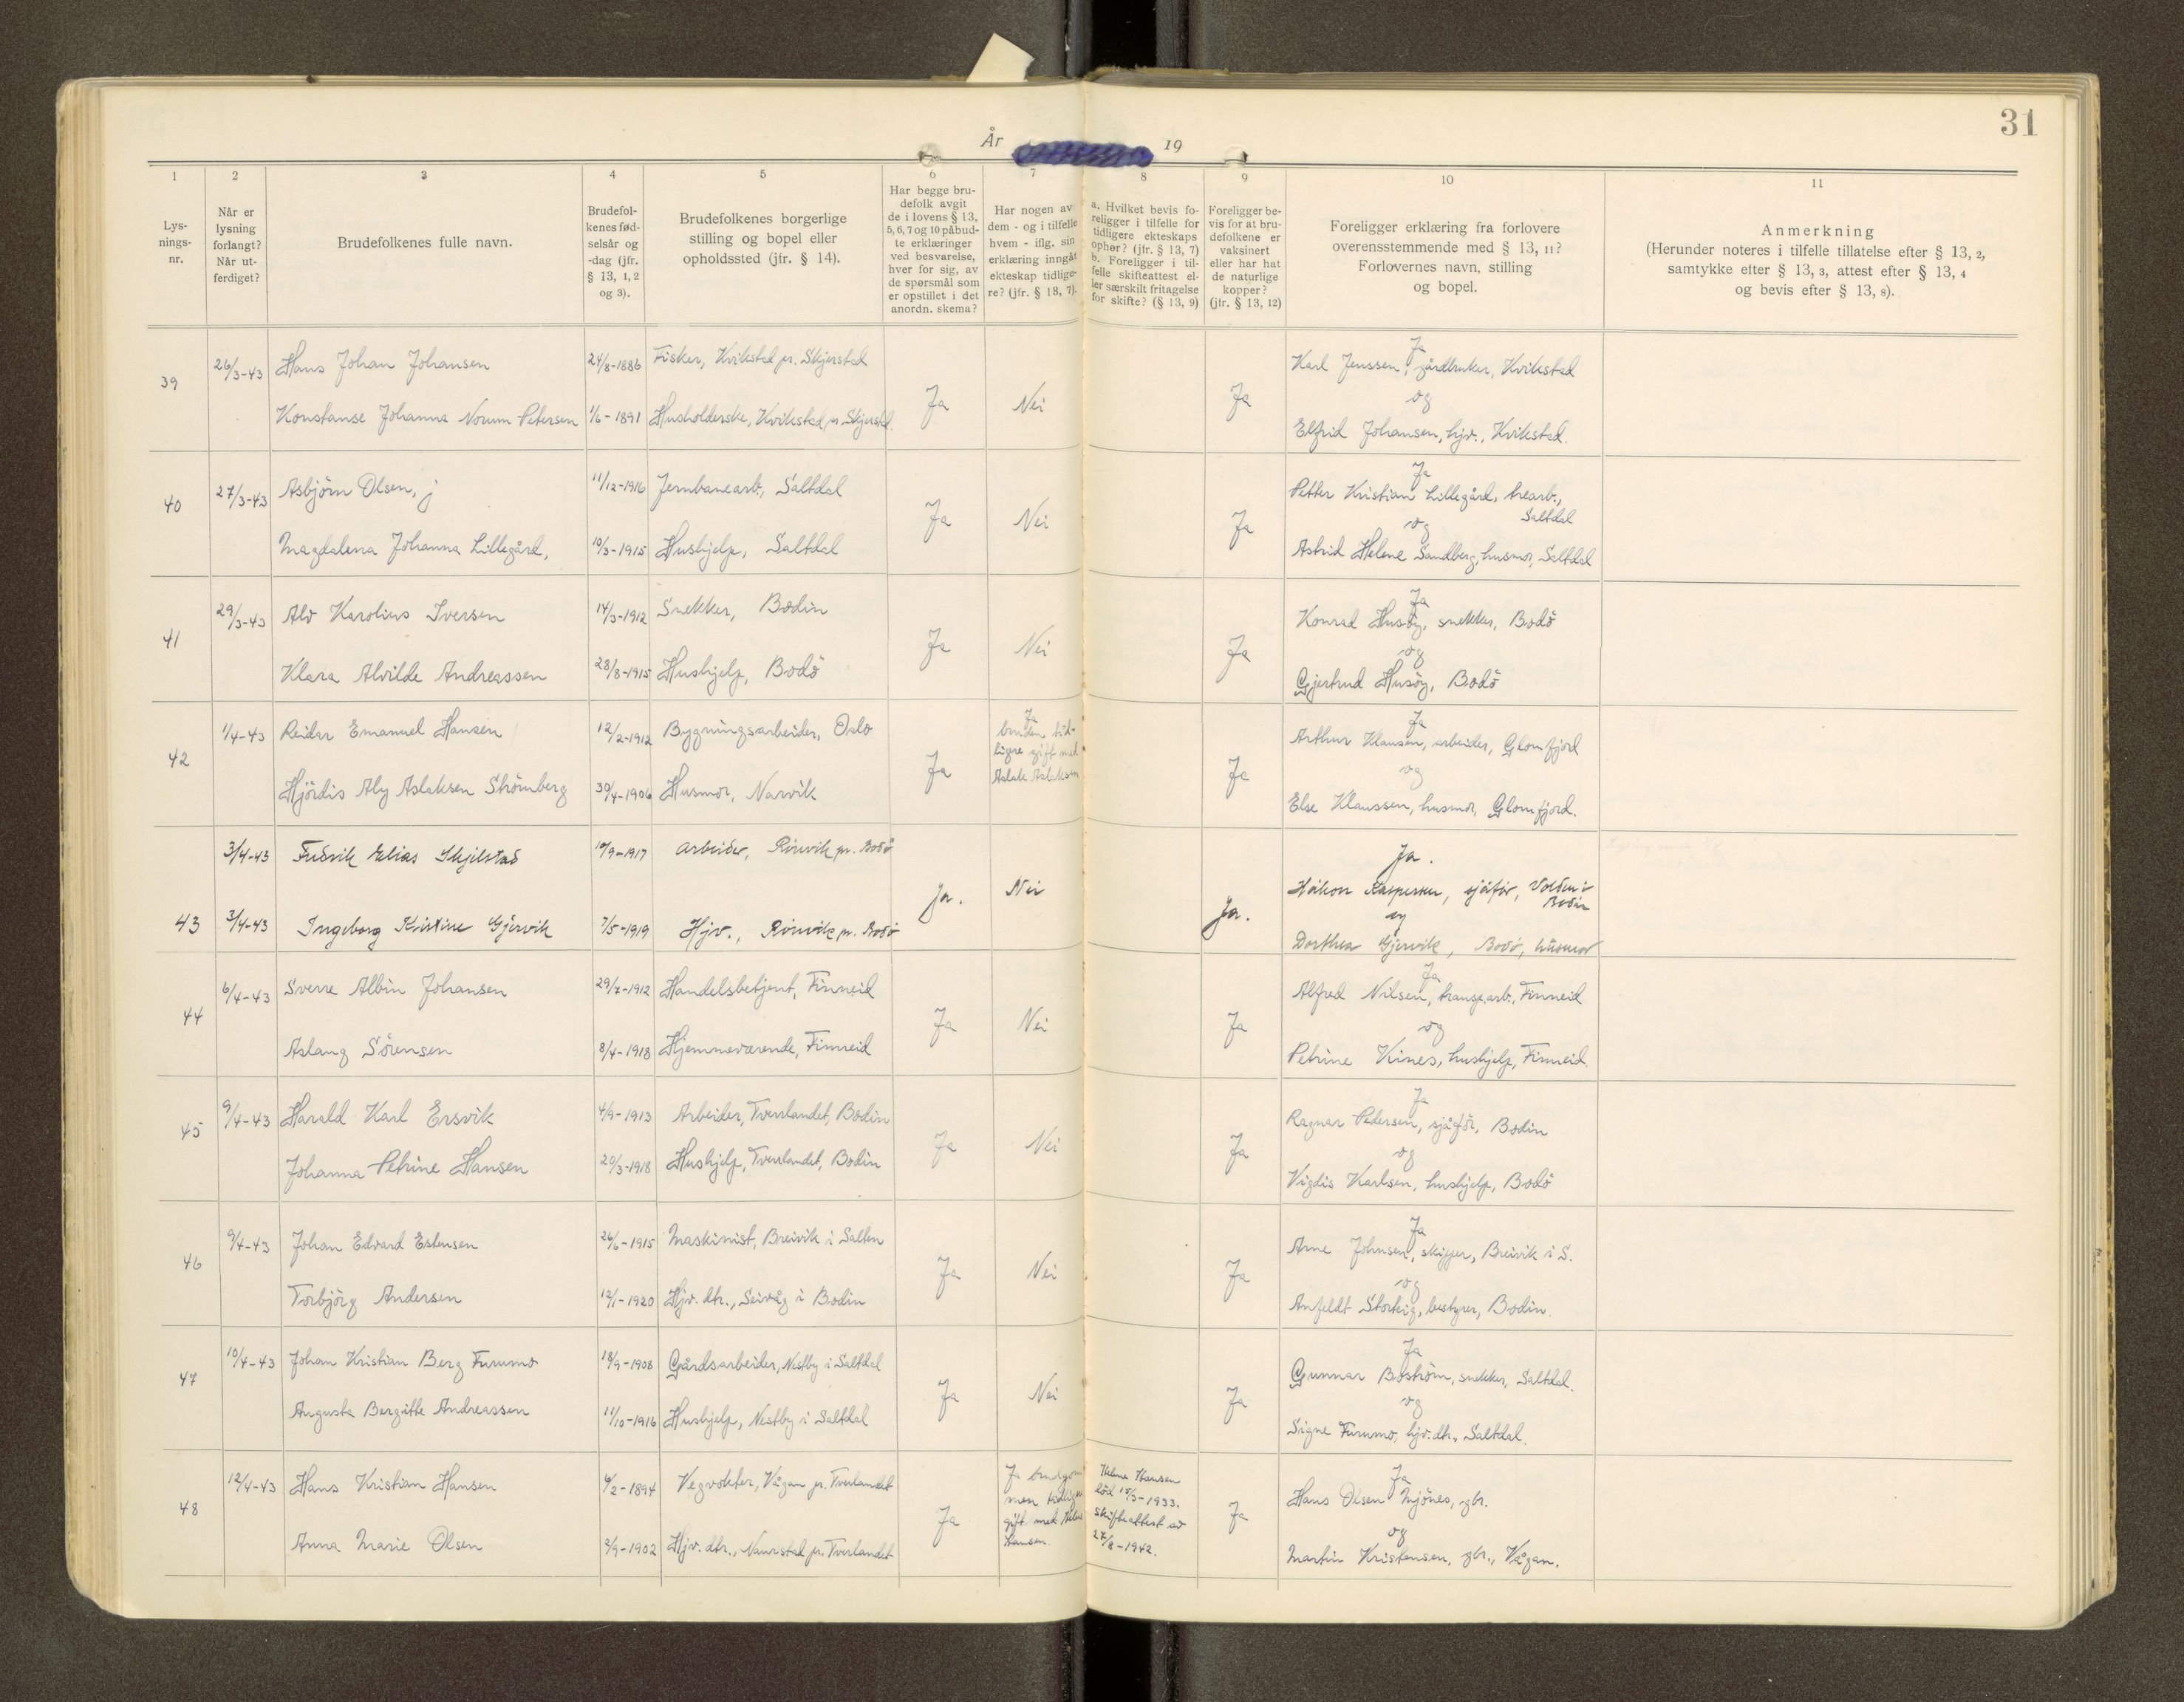 31
År 19
1
2
3
4
5
6
7
8
9
10
11
Lys-
nings-
nr.
Når er
lysning
forlangt?
Når ut-
ferdiget?
Brudefolkenes fulle navn.
Brudefol-
kenes fød-
selsår og
-dag (jfr.
§ 13, 1, 2
og 3).
Brudefolkenes borgerlige
stilling og bopel eller
opholdssted (jfr. § 14).
Har begge bru-
defolk avgit
de i lovens § 13,
5, 6, 7 og 10 påbud-
te erklæringer
ved besvarelse,
hver for sig, av
de spørsmål som
er opstillet i det
anordn. skema?
Har nogen av
dem - og i tilfelle
hvem - iflg. sin
erklæring inngåt
ekteskap tidlige-
re? (jfr. § 13, 7).
a. Hvilket bevis fo-
religger i tilfelle for
tidligere ekteskaps
ophør? (jfr. § 13, 7)
b. Foreligger i til-
felle skifteattest el-
ler særskilt fritagelse
for skifte? (§ 13, 9)
Foreligger be-
vis for at bru-
defolkene er
vaksinert
eller har hat
de naturlige
kopper?
(jfr. § 13, 12)
Foreligger erklæring fra forlovere
overensstemmende med § 13, 11?
Forlovernes navn, stilling
og bopel.
Anmerkning
(Herunder noteres i tilfelle tillatelse efter § 13, 2,
samtykke efter § 13, 3, attest efter § 13, 4
og bevis efter § 13, 8).
39 26/3-43 Hans Johan Johansen 24/8-1886 Fisker, Kvikstad pr. Skjerstad
Konstanse Johanna Norum Petersen 1/6-1891 Husholderske, Kvikstad pr. Skjerstad.
Ja Nei Ja
Ja
Karl Jenssen, gårdbruker, Kvikstad
og
Elfrid Johansen, hjv., Kvikstad.
40 27/3-43 Asbjörn Olsen, j 11/12-1916 Jernbanearb., Saltdal
Magdalena Johanna Lillegård, 10/3-1915 Hushjelp, Saltdal
Ja Nei Ja
Ja
Petter Kristian Lillegård, trearb.,
Saltdal
og
Astrid Helene Sandberg, husmor, Saltdal
41 29/3-43 Alv Karolius Iversen 14/3-1912 Snekker, Bodin
Klara Alvilde Andreassen 28/8-1915 Hushjelp, Bodö
Ja Nei Ja
Ja
Konrad Husöy, snekker, Bodö
og
Gjertrud Husöy, Bodö
42 1/4-43 Reidar Emanuel Hansen 12/2-1912 Bygningsarbeider, Oslo
Hjördis Aly Aslaksen Strömberg 30/4-1906 Husmor, Narvik
Ja
Ja
bruden tid-
ligre gift med
Aslak Aslaksen
Ja
Ja
Arthur Klausen, arbeider, Glomfjord
og
Else Klaussen, husmor, Glomfjord.
43 3/4-43 Fredvik Elias Skjelstad 10/9-1917 arbeider, Rönvik pr. Bodö
3/4-43 Ingeborg Kristine Gjervik 7/5-1919 Hjv., Rönvik pr. Bodö
Ja. Nei Ja.
Ja.
Håkon Kaspersen, sjåför, Volden i
Bodin
og
Dorthea Gjervik, Bodö, husmor
44 6/4-43 Sverre Albin Johansen 29/7-1912 Handelsbetjent, Finneid
Aslaug Sörensen 8/4-1918 Hjemmeværende, Finneid
Ja Nei Ja
Ja
Alfred Nilsen, transp.arb., Finneid
og
Petrine Kines, hushjelp, Finneid.
45 9/4-43 Harald Karl Ersvik 4/9-1913 Arbeider, Tverrlandet, Bodin
Johanna Petrine Hansen 20/3-1918 Hushjelp, Tverrlandet, Bodin
Ja Nei Ja
Ja
Ragnar Pedersen, sjåför, Bodin
og
Vigdis Karlsen, hushjelp, Bodö
46 9/4-43 Johan Edvard Estensen 26/6-1915 Maskinist, Breivik i Salten
Torbjörg Andersen 12/1-1920 Hjv. dtr., Seivåg i Bodin
Ja Nei Ja
Ja
Arne Johnsen, skipper, Breivik i S.
og
Anfeldt Storteig, bestyrer, Bodin.
47 10/4-43 Johan Kristian Berg Furumo 18/9-1908 Gårdsarbeider, Nestby i Saltdal
Augusta Bergitte Andreassen 11/10-1916 Hushjelp, Nestby i Saltdal
Ja Nei Ja
Ja
Gunnar Boström, snekker, Saltdal.
og
Signe Furumo, hjv. dtr., Saltdal.
48 12/4-43 Hans Kristian Hansen 6/2-1894 Vegvokter, Vågan pr. Tverlandet
Anna Marie Olsen 3/9-1902 Hjv. dtr., Naurstad pr. Tverlandet
Ja
Ja brudgom
men tidliger
gift med Helene
Hansen.
Helene Hansen
död 15/3-1933.
Skifteattest av
27/8-1942.
Ja
Ja
Hans Olsen Mjönes, gbr.
og
Martin Kristensen, gbr., Vågan.